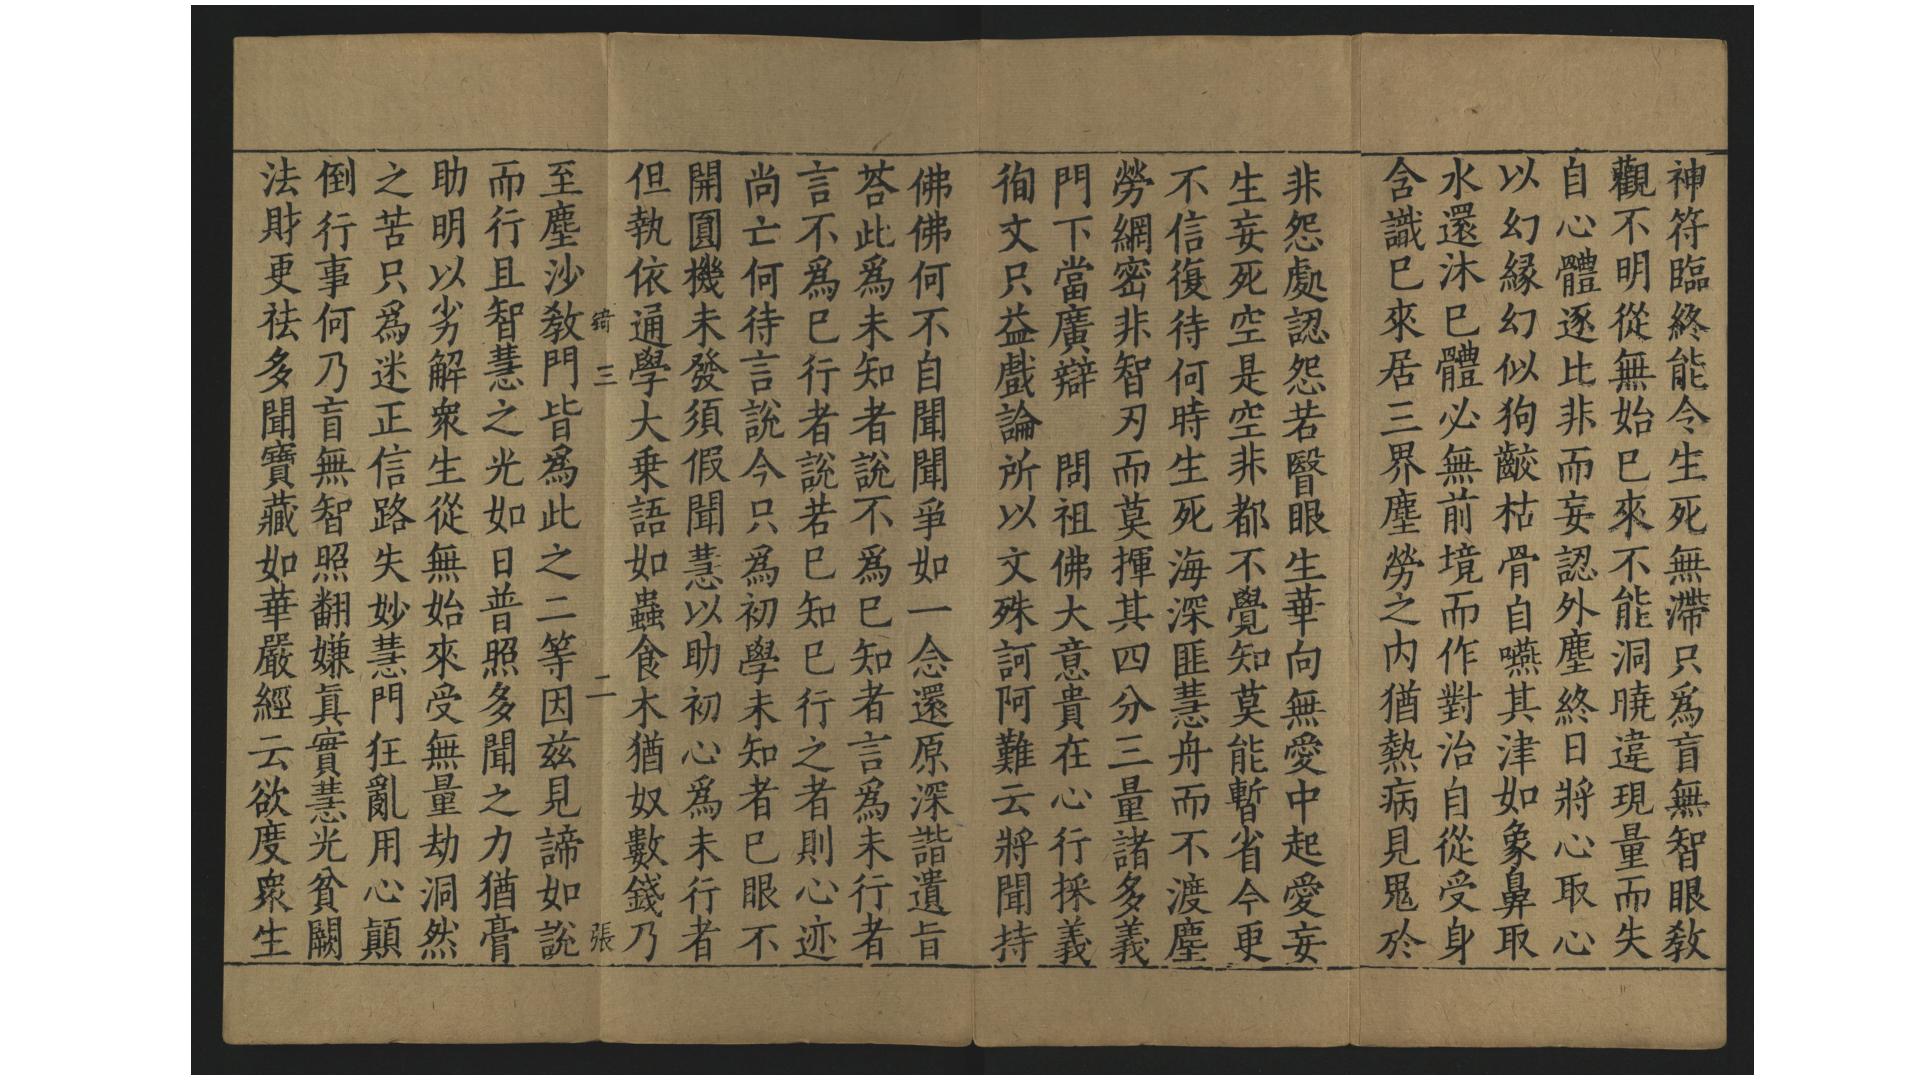 神符臨終能令生死無滯只爲盲無智眼教
觀不明從無始巳來不能洞曉違現量而失
自心體逐比非而妄認外塵終日將心取心
以幻緣幻似狗齩枯骨自嚥其津如象鼻取
水還沐巳體必無前境而作對治自從受身
含識巳來居三界塵勞之内猶熱病見鬼於
非怨處認怨若瞖眼生華向無愛中起愛妄
生妄死空是空非都不覺知莫能暫省今更
不信復待何時生死海深匪慧舟而不渡塵
勞網密非智刃而莫揮其四分三量諸多義
門下當廣辯　問祖佛大意貴在心行採義
徇文只益戲論所以文殊訶阿難云將聞持
佛佛何不自聞聞爭如一念還原深諧遺旨
荅此爲未知者說不爲巳知者言爲未行者
言不爲巳行者說若巳知巳行之者則心迹
尚亡何待言說今只爲初學未知者巳眼不
開圓機未發須假聞慧以助初心爲未行者
但執依通學大乗語如蟲食木猶奴數錢乃
錡　三　二　張
至塵沙教門皆爲此之二等因兹見諦如說
而行且智慧之光如日普照多聞之力猶膏
助明以劣解衆生從無始來受無量劫洞然
之苦只爲迷正信路失妙慧門狂亂用心顛
倒行事何乃盲無智照翻嫌真實慧光貧闕
法財更祛多聞寶藏如華嚴經云欲度衆生